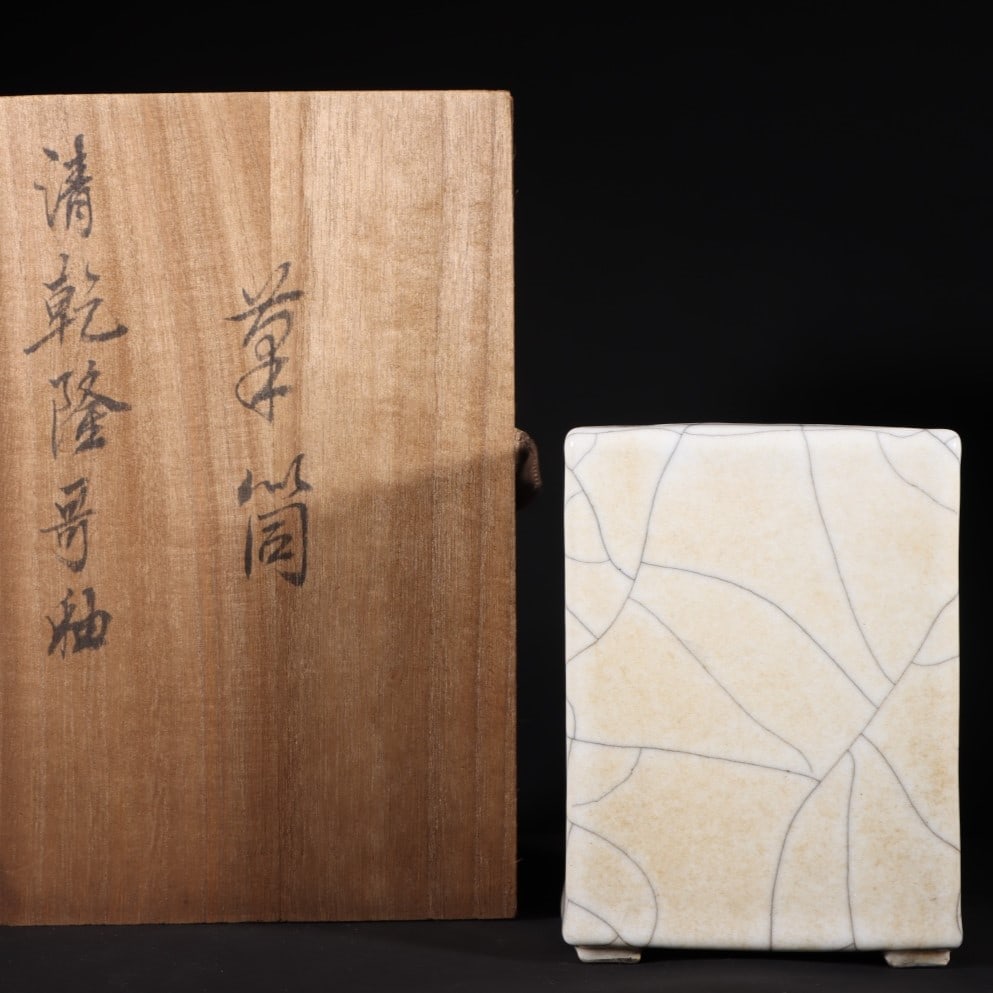 筆筒
清乾隆哥釉